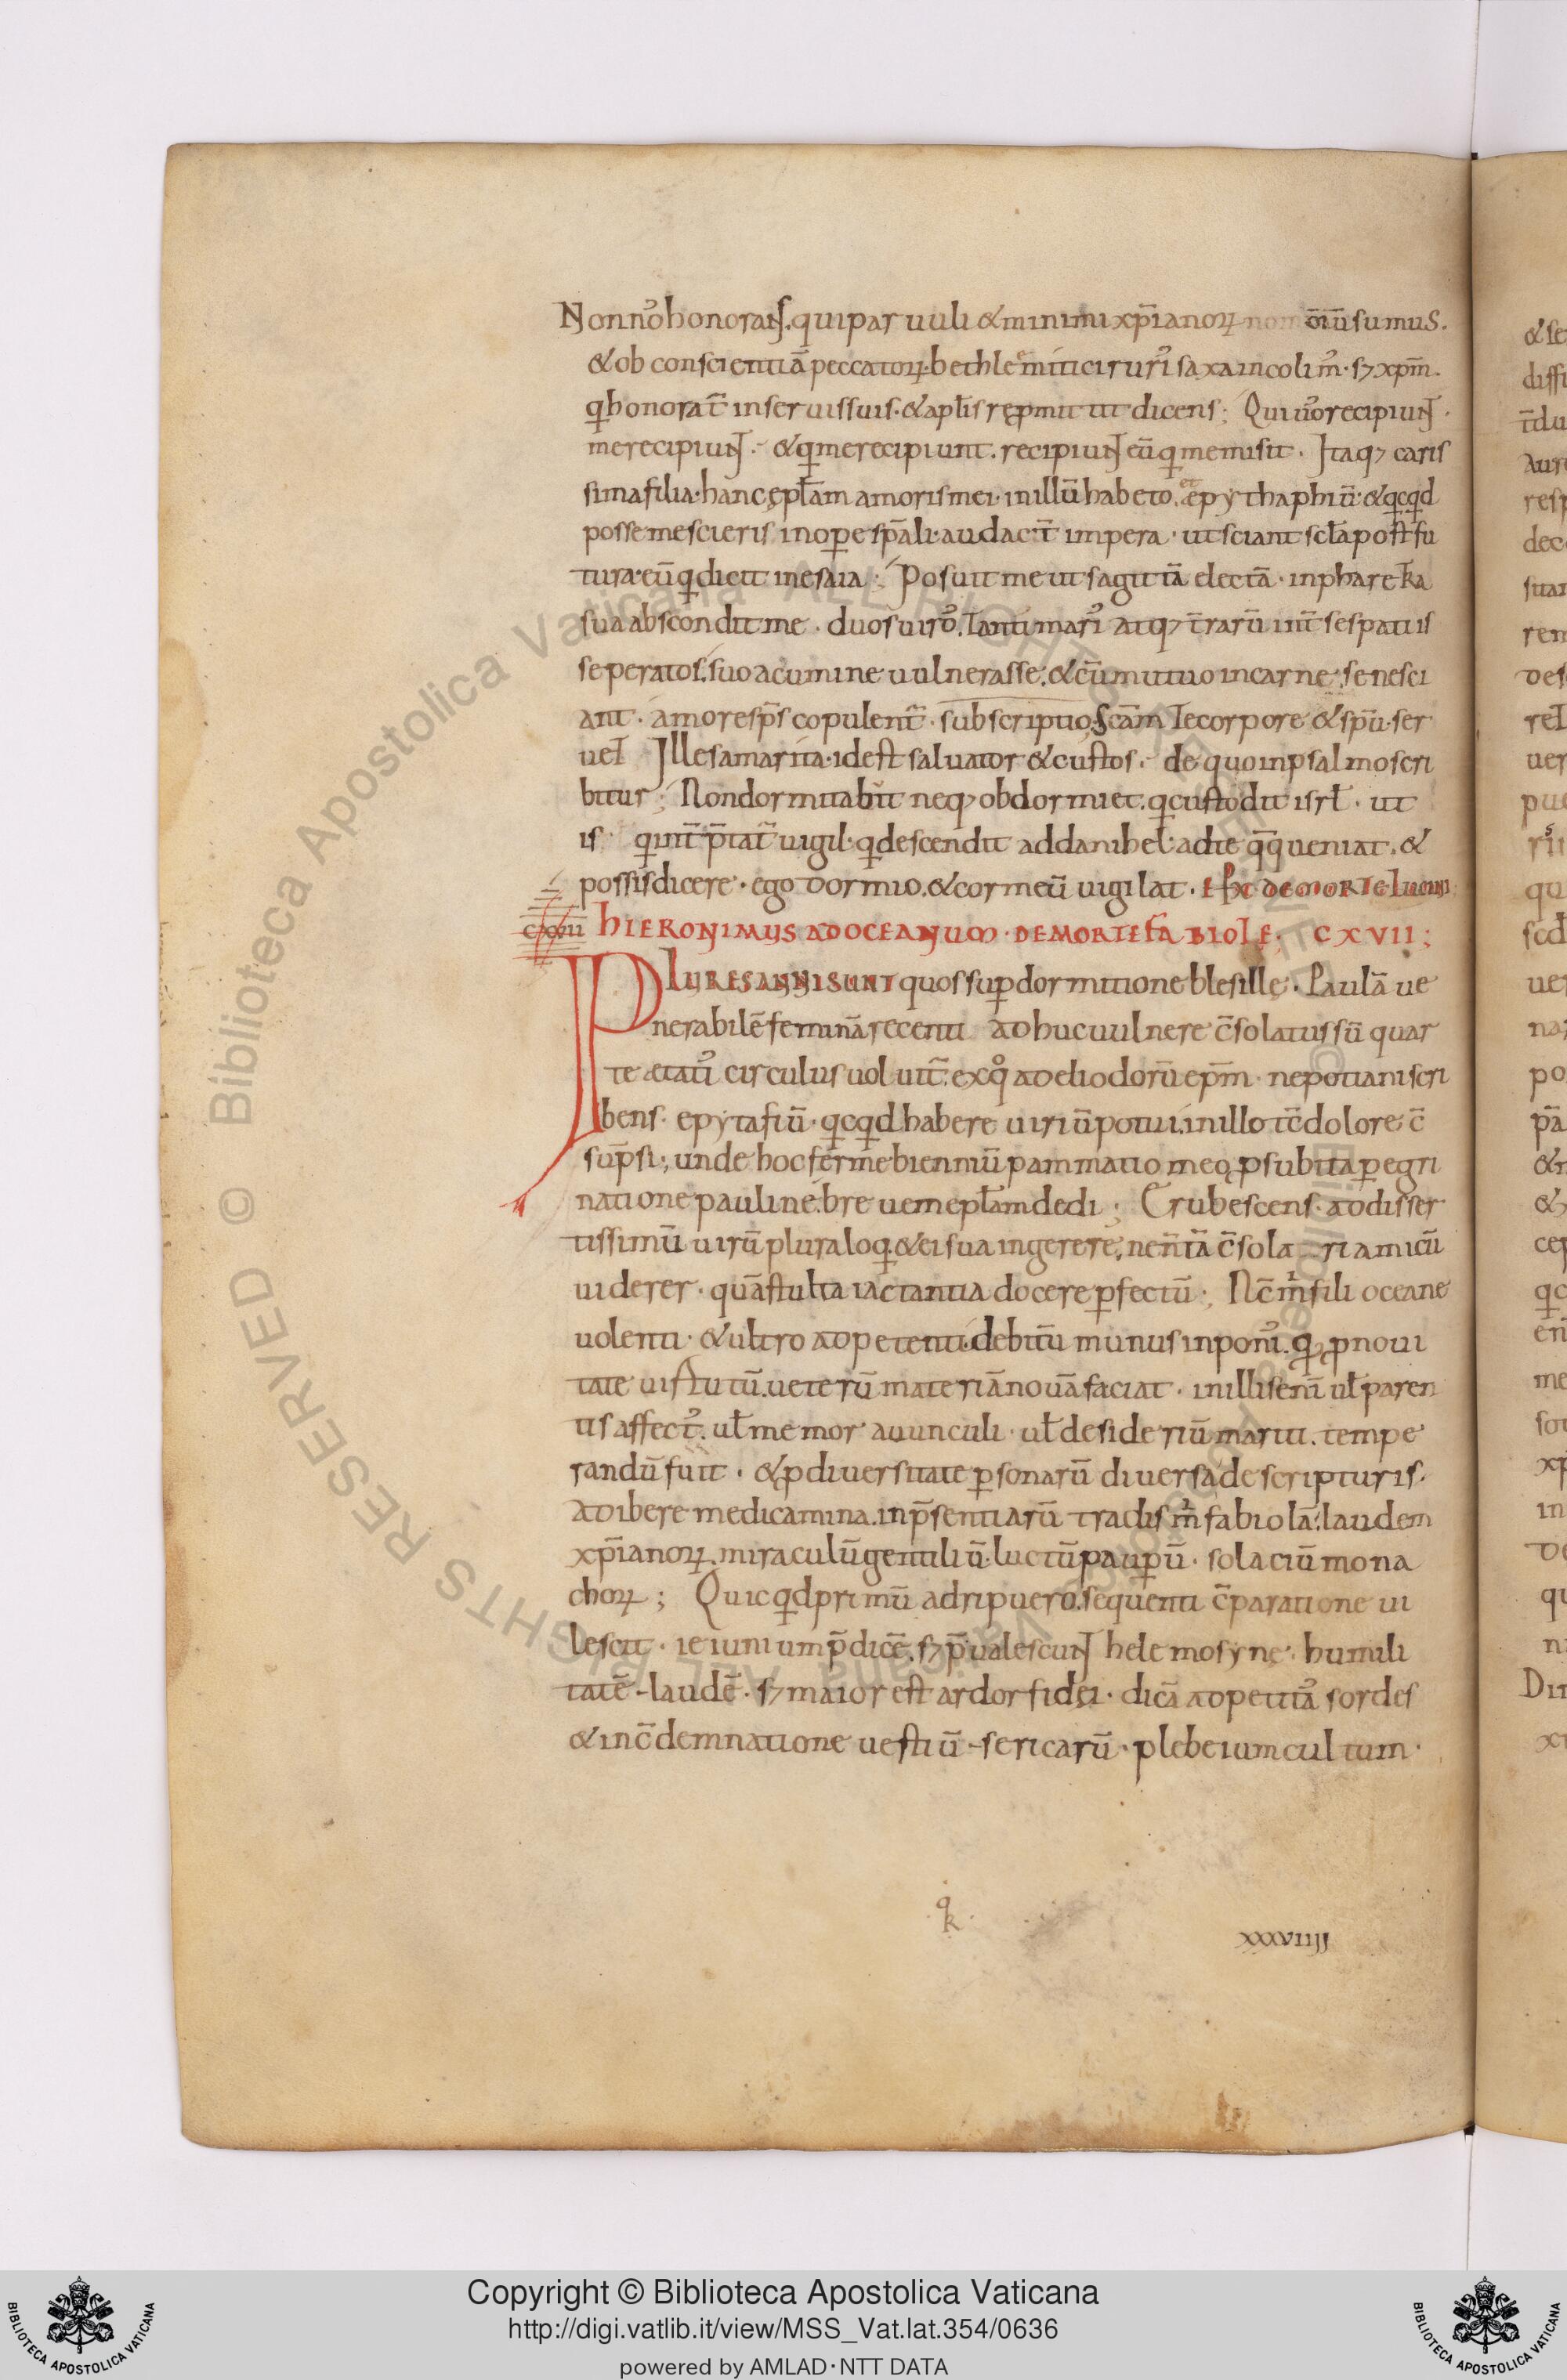 Non nos honorant. qui paruuli & minimi xp̄ianoꝝ omniū sumus.
& ob conscientiā peccatoꝝ. bethlemitici ruris saxa incolim᾿. sꝫ xpm̄.
q honorat᷑ in seruis suis. & apłis repmittit dicens; Qui uos recipiunt.
me recipiunt. & qi me recipiunt. recipiunt eū qi me misit. Itaqꝫ caris
sima filia. hanc epłam amoris mei. in illū habeto. epythaphiū. & qcqd
posse me scieris in ope sp̄ali. audact̄ impera. ut sciant scła post fu
tura. eū qi dicit in esaia; Posuit me ut sagittā electā. in pharetra
sua abscondit me. duos uiros. tanti maris atqꝫ t̄rarū int̄ se spatiis
seperatos. suo acumine uulnerasse. & cū mutuo in carne. se nesci
ant. amore sp̄s copulent᷑. subscriptio. Scam te corpore & spū. ser
uet Ille samarita. id est saluator & custos. de quo in psalmo scri
bitur; Non dormitabit neqꝫ obdormiet. q custodit isrł. ut
is qi int̄p̄tat᷑ uigil. qi descendit ad danihel. ad te qq̄ ueniat. &
possis dicere. ego dormio. & cor meū uigilat. EXPŁ DE MORTE lucini
cxvii HIERONIMUS AD OCEANUM. DE MORTE FABIOLE. CXVII;
PLURES ANNI SUNT quos sup dormitione blesille. Paulā ue
nerabilē feminā recenti adhuc uulnere c̄solatus sū quar
te etatis circulus uoluit᷑. ex qo ad eliodorū epm̄. nepotiani scri
bens. epytafiū. qcqd habere uiriū potui. in illo tc̄ dolore c̄
sūpsi; unde hoc ferme bienniū pammatio meo. p subita peregri
natione pauline. breuem epłam dedi; Erubescens. ad disser
tissimū uirū plura loqi. & ei sua ingerere. ne n̄ tā c̄sola ri amicū
uiderer. quā stulta iactantia docere pfectū; Nc̄ m̄ fili oceane
uolenti. & ultro adpetenti. debitū munus inponis. q p noui
tate uistutū. ueterū materiā nouā faciat. in illis enī uł paren
tis affectus. uł memor auunculi. uł desideriū mariti. tempe
randū fuit. & p diuersitate psonarū diuersa de scripturis.
adibere medicamina. in p̄sentiarū tradis m̄ fabiolā. laudem
xp̄ianoꝝ. miraculū gentiliū. luctū paupū. solaciū mona
choꝝ; Quicqd primū adripuero. sequenti c̄paratione ui
lescit. ieiunium p̄dicē. sꝫ p̄ualescunt helemosyne. humili
tatē laudē. sꝫ maior est ardor fidei. dicā adpetitas sordes
& in c̄demnatione uestiū sericarū. plebeium cultum.
q
k
xxxviiij
Copyright © Biblioteca Apostolica Vaticana
http://digi.vatlib.it/view/MSS_Vat.lat.354/0636
powered by AMLAD·NTT DATA
BIBLIOTECA APOSTOLICA VATICANA
BIBLIOTECA APOSTOLICA VATICANA